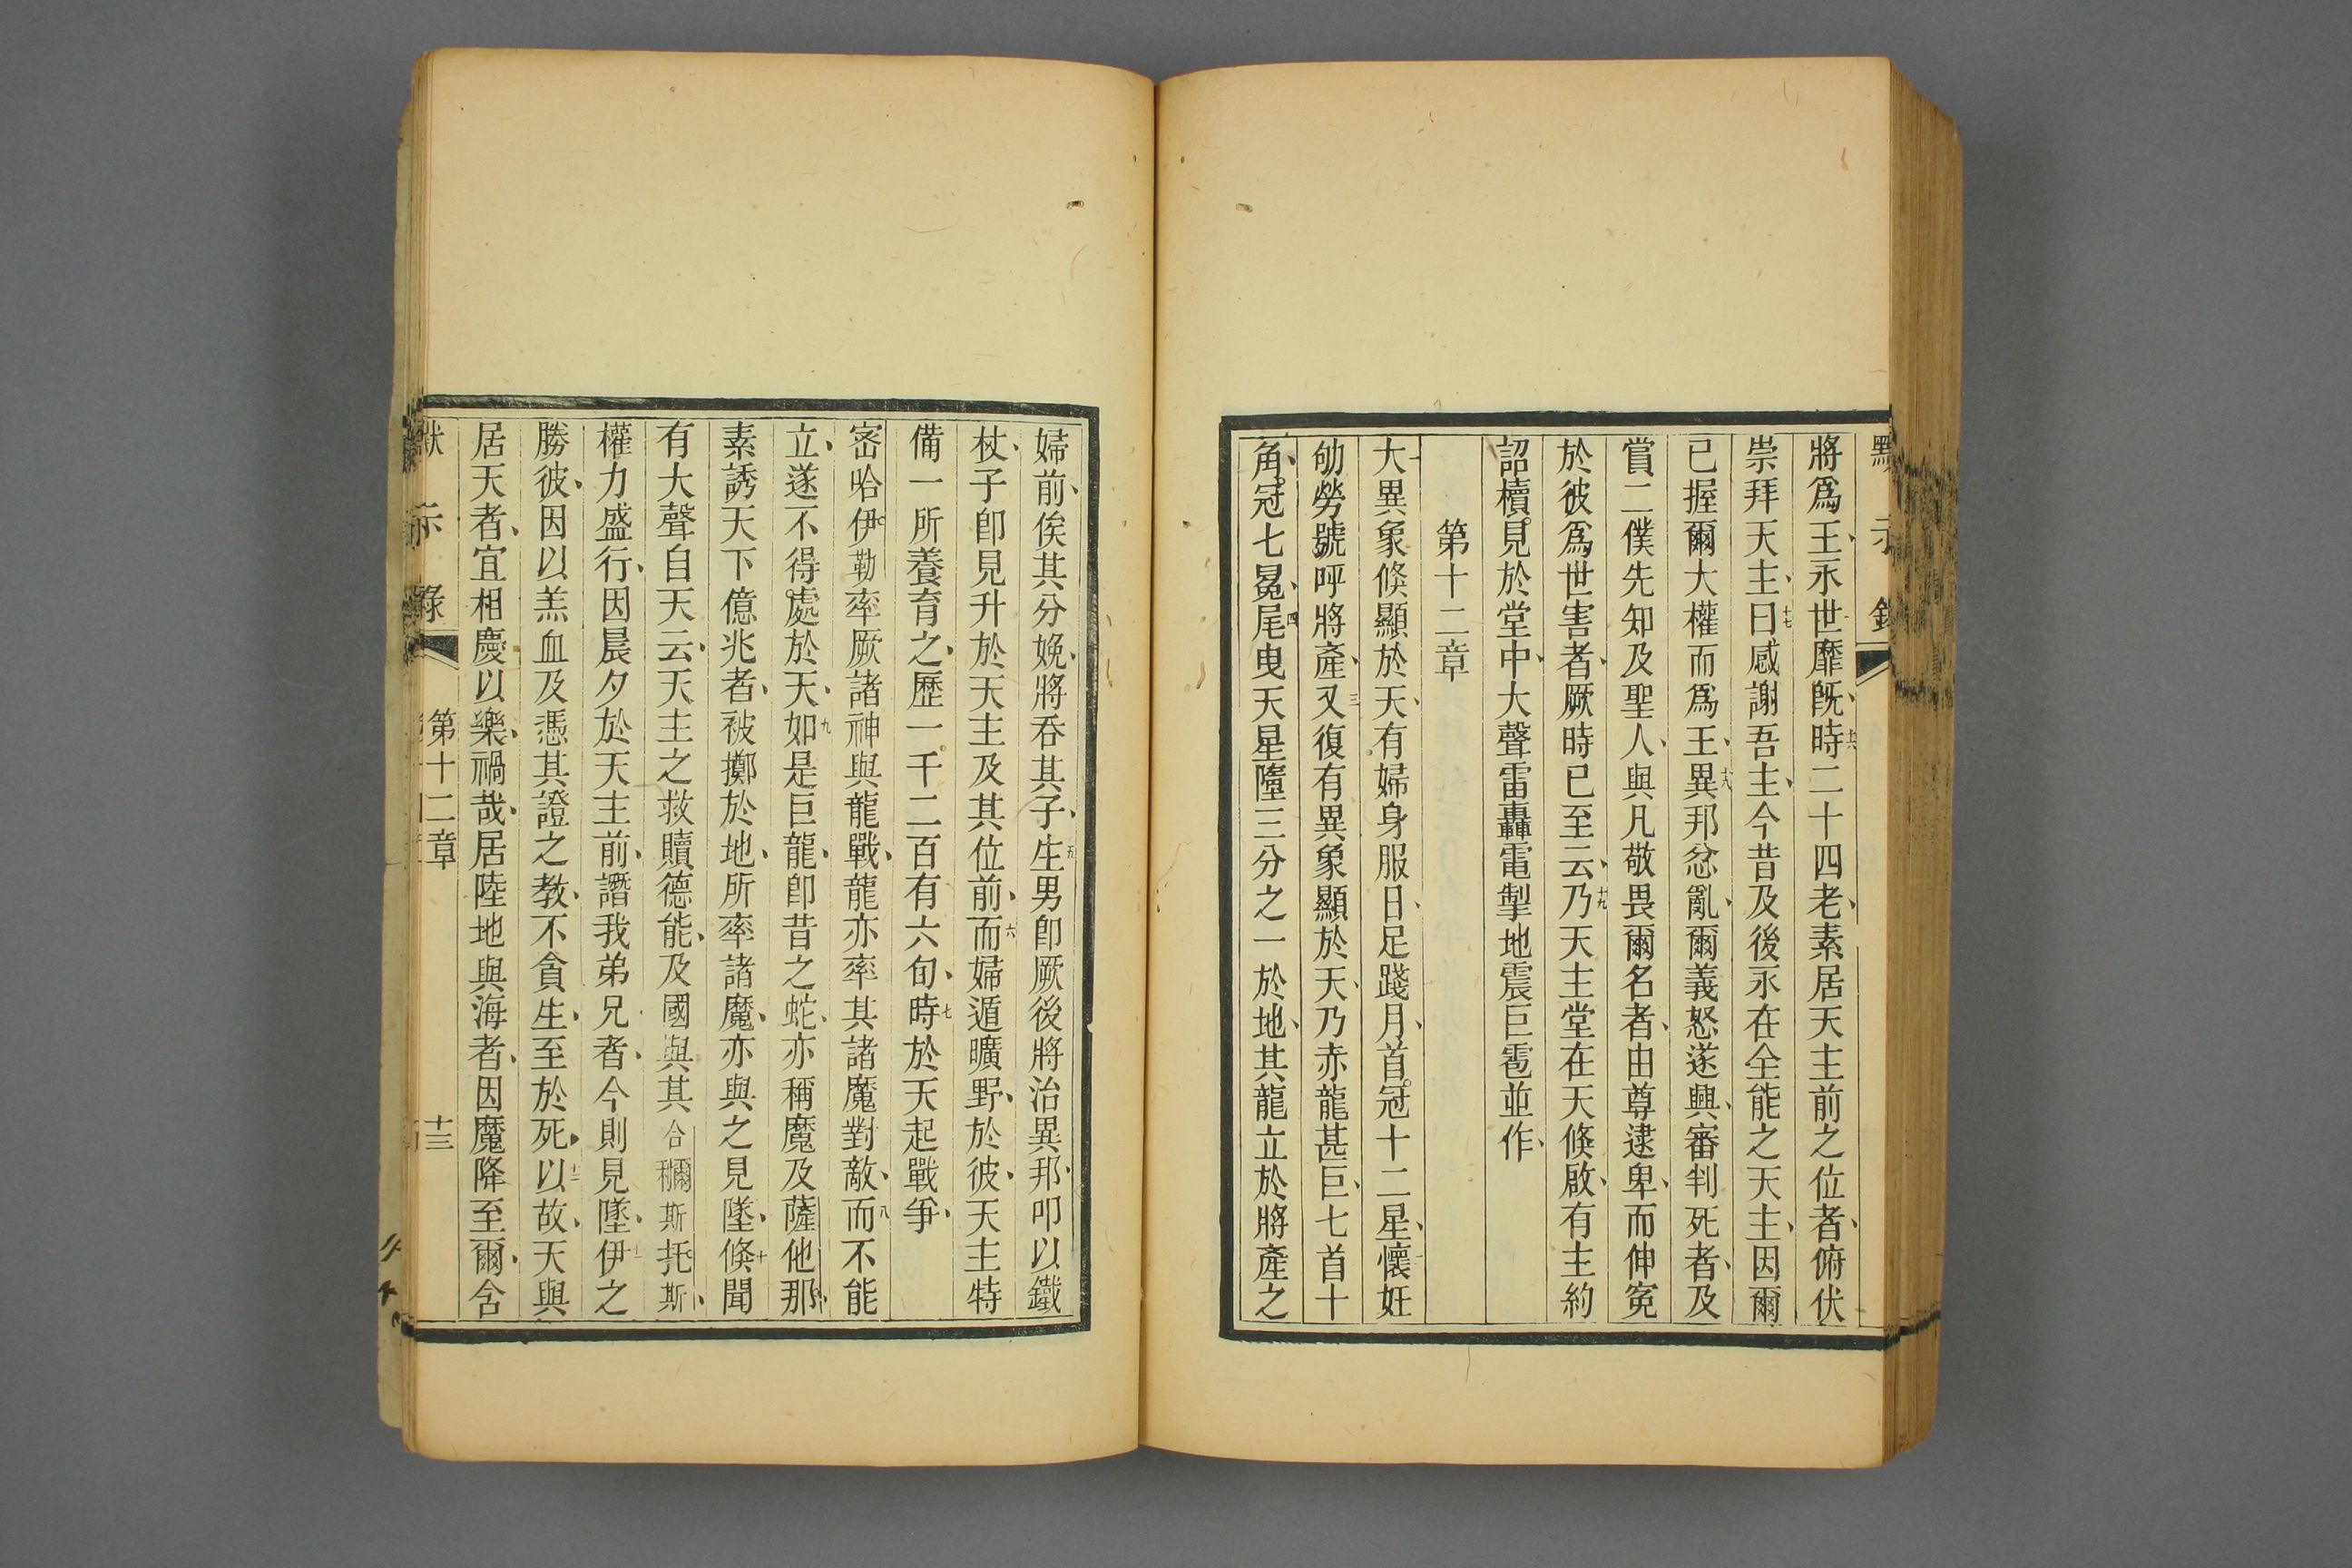 默示錄
將爲王、永世靡旣、時二十四老、素居天主前之位者、俯伏
崇拜天主、曰感謝吾主、今昔及後永在全能之天主、因爾
已握爾大權而爲王、異邦忿亂、爾義怒遂興、審判死者、及
賞二僕先知及聖人、與凡敬畏爾名者、由尊逮卑、而伸寃
於彼爲世害者、厥時已至云、乃天主堂在天倏啟、有主約
詔櫝見於堂中、大聲雷轟電掣地震巨雹並作、
第十二章
大異象倏顯於天、有婦身服日、足踐月、首冠十二星、懷妊
劬勞號呼將產、又復有異象顯於天、乃赤龍甚巨、七首十
角、冠七冕、尾曳天星隨三分之一於地、其龍立於將產之
婦前、俟其分娩、將吞其子、生男卽厥後將治異邦、叩以鐵
杖、子卽見升於天主及其位前、而婦遁曠野、於彼、天主特
備一所養育之、歷一千二百有六旬、時於天起戰爭、
宻哈伊勒率厥諸神與龍戰、龍亦率其諸魔對敵、而不能
立、遂不得處於天、如是巨龍、卽昔之蛇、亦稱魔及薩他那、
素誘天下億兆者、被擲於地、所率諸魔、亦與之見墜、倏聞
有大聲自天云、天主之救贖德能、及國與其合穪斯托斯、
權力盛行、因晨夕於天主前、譖我弟兄者、今則見墜、伊之
勝彼、因以羔血及憑其證之教、不貪生、至於死、以故、天與
居天者、宜相慶以樂、禍哉、居陸地與海者、因魔降至爾、含
默示錄
第十二章
十三